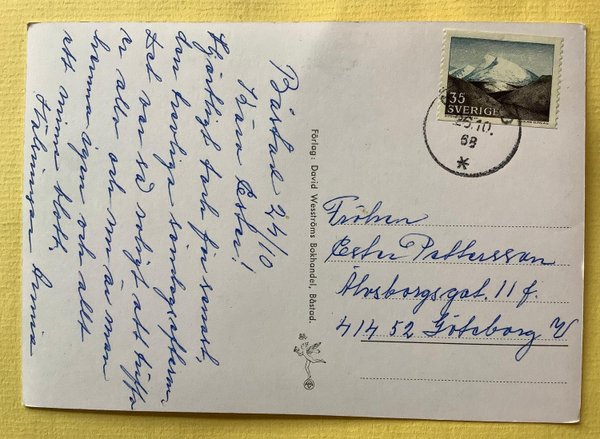 Båstad 24/10
Kära Ester!
Hjärtligt tack för senast,
den trevliga söndagsaftonen
det var så roligt att träffa
er alla och nu är man
hemma igen och allt
ett minne blott.
Hälsningar Annie
Förlag: David Wesströms Bokhandel, Båstad.
35
SVERIGE
25.10.
68
Fröken
Ester Pettersson
Älvsborgsgat. 11 f.
414 52 Göteborg V